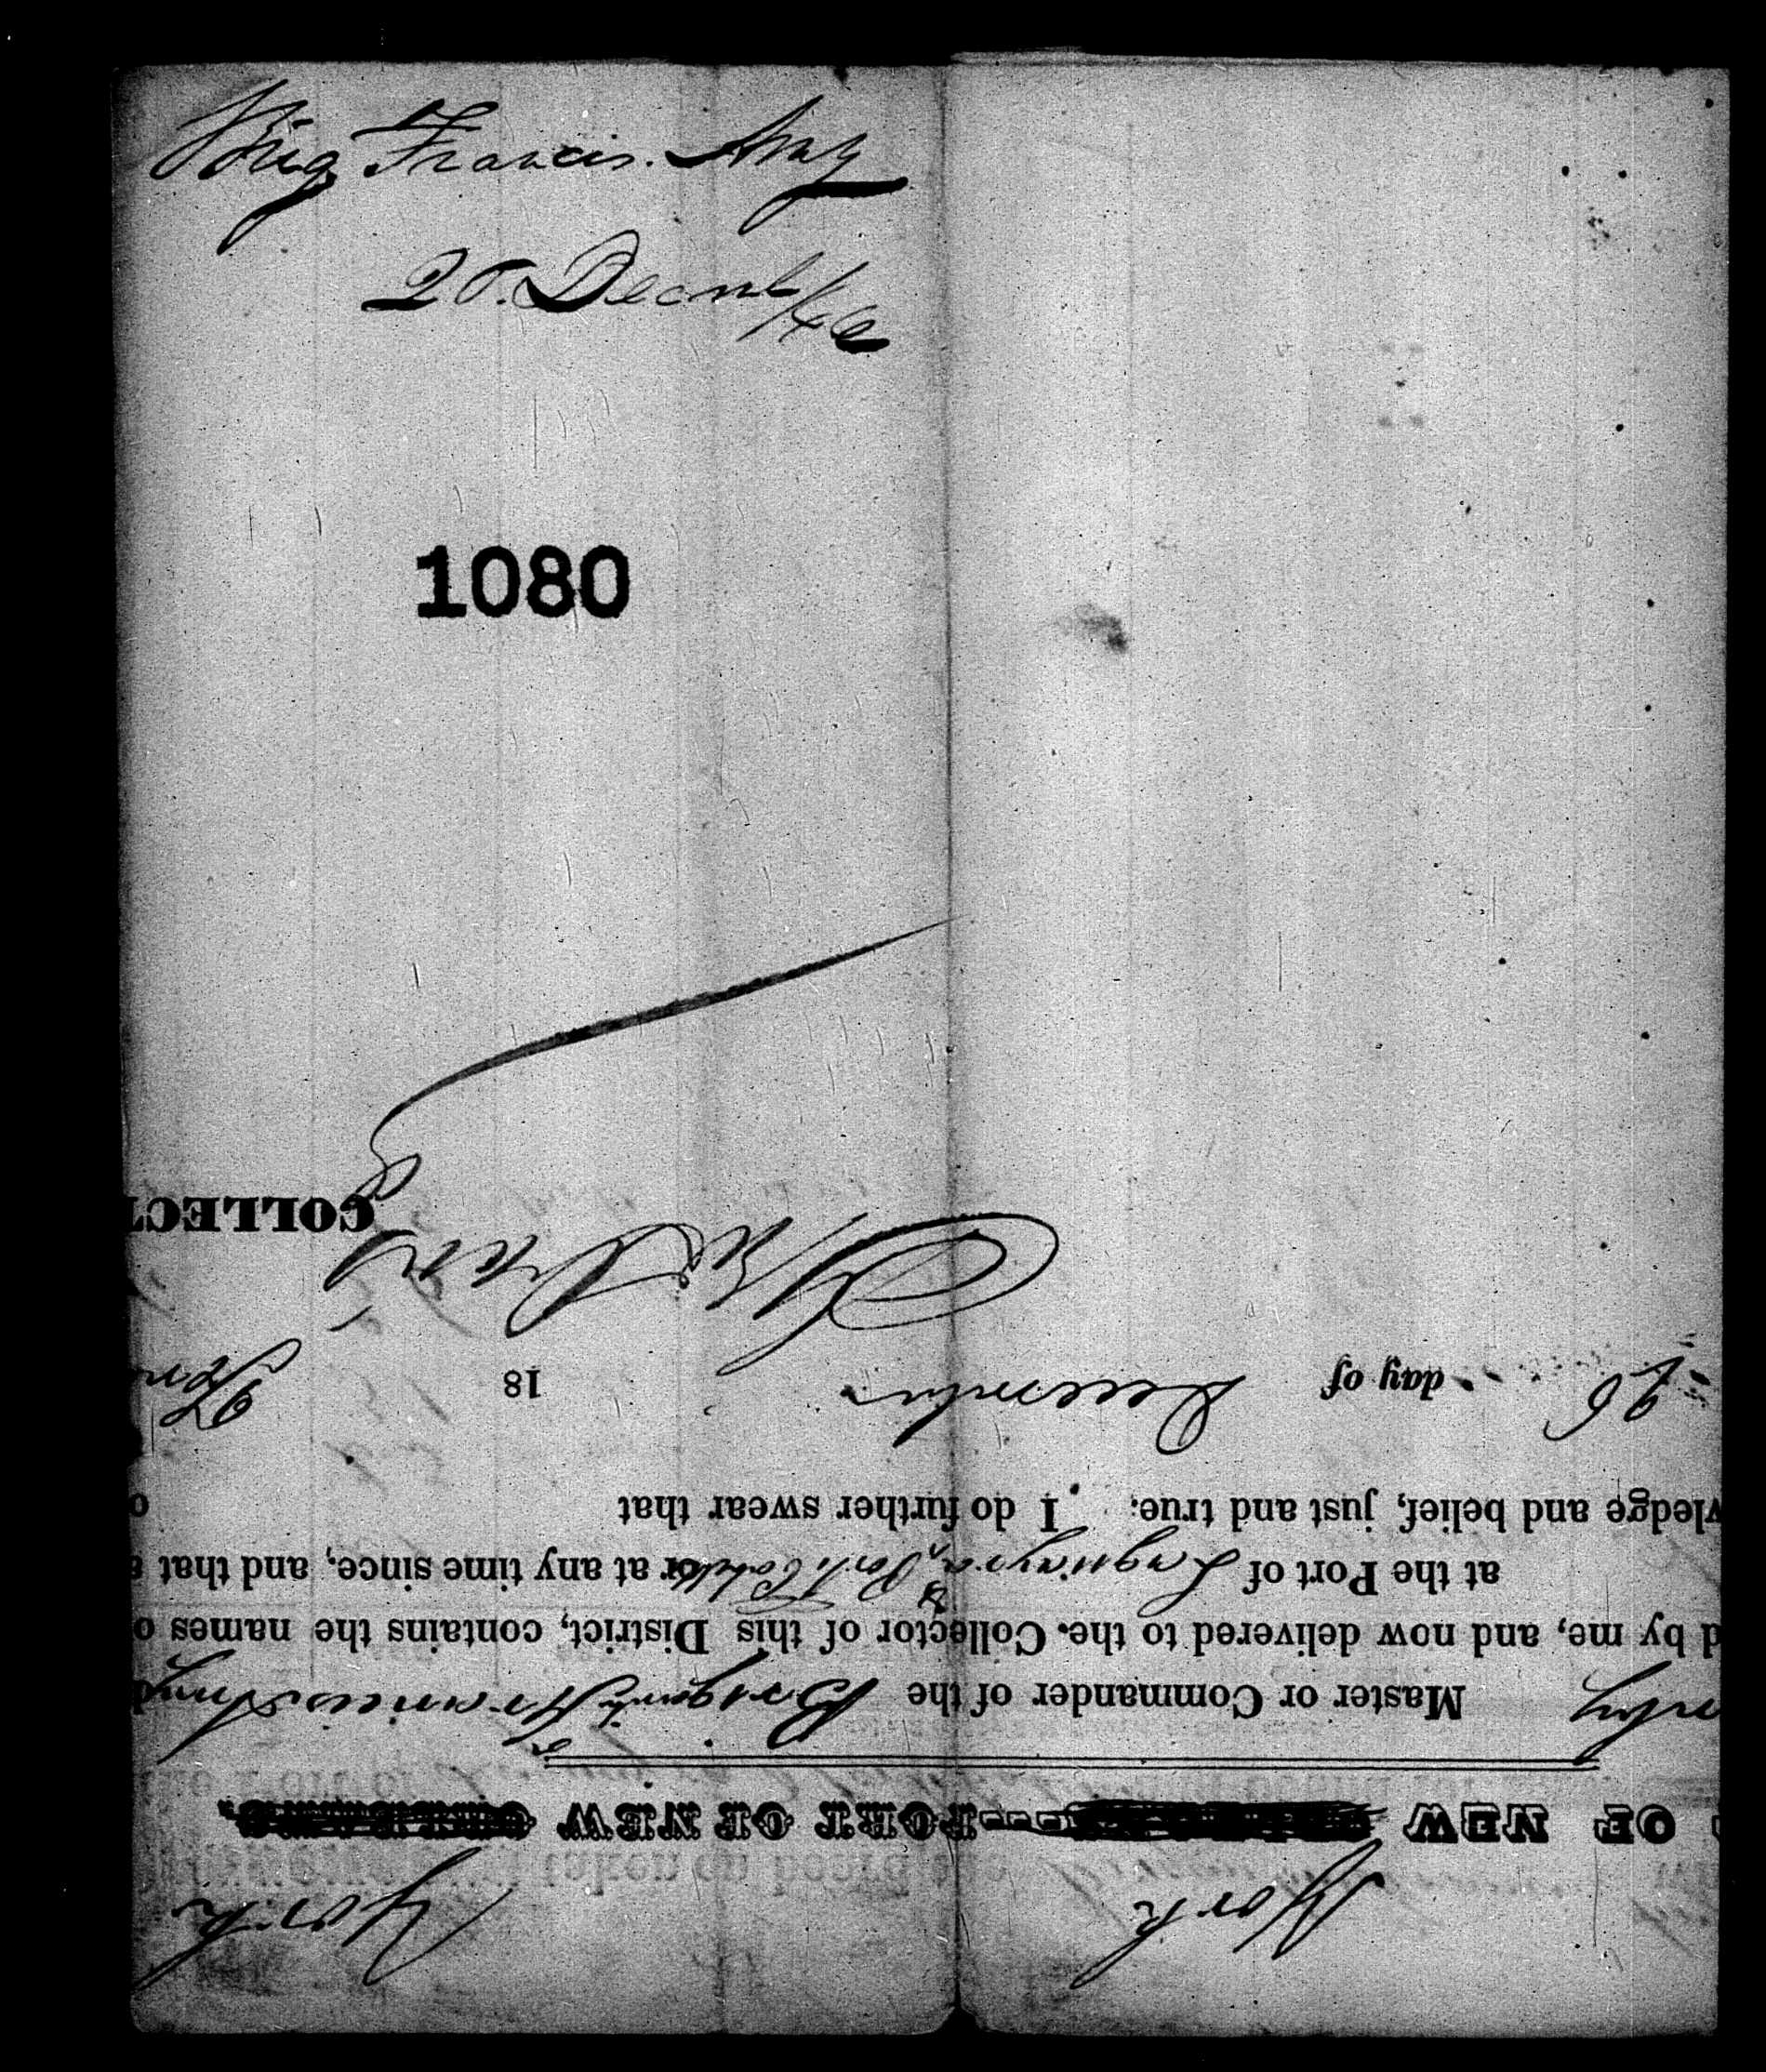 Brig Francis. Amy
26. Decmb/46
1080
York York
OF NEW PORT OF NEW
Master or Commander of the Brigantine Francis Amy
d by me, and now delivered to the Collector of this District, contains the names o
at the Port of Laguayra & Porto Cabello or at any time since, and that a
vledge and belief, just and true: I do further swear that
26 day of December 18
COLLECT